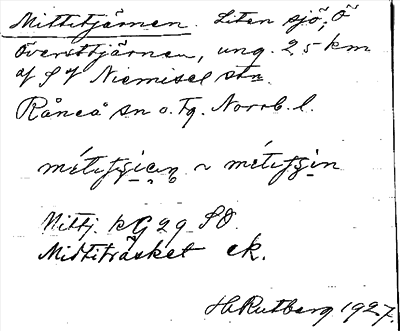 Mittitjärnen. Liten sjö, Ö
Översttjärnen, ung. 2,5 km
af S of Niemisel stn.
Råneå sn o. Tg. Norrb. l.
Mittj. kG 29 SO
Mittiträsket ek.
H. Rutberg 1927.